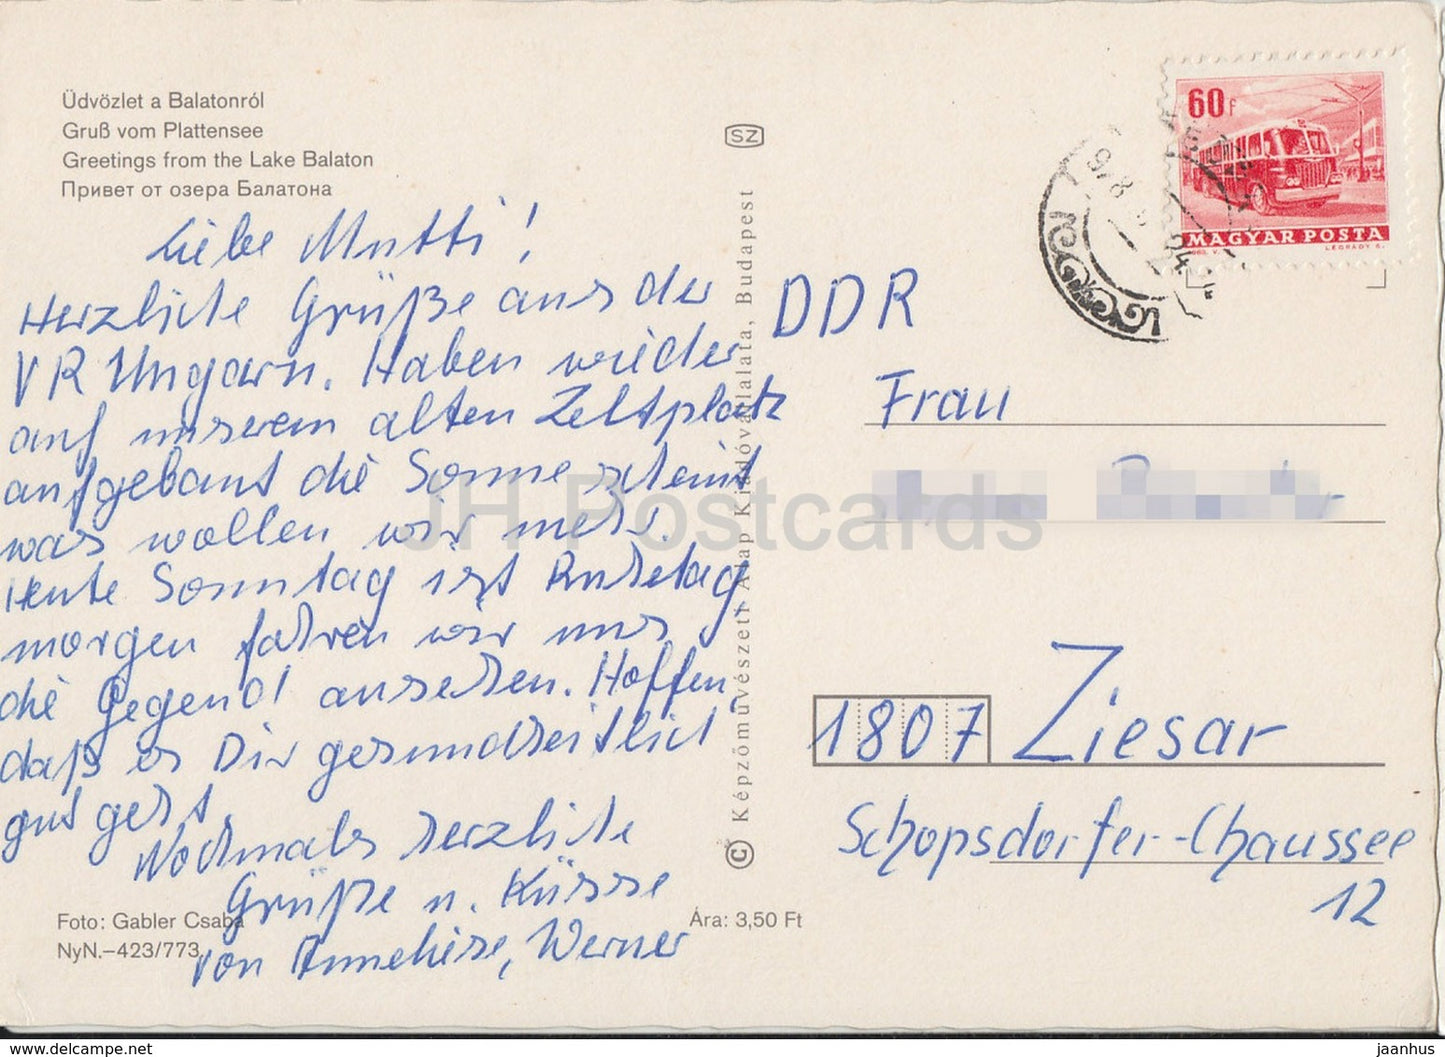 Üdvözlet a Balatonról
Gruß vom Plattensee
Greetings from the Lake Balaton
Привет от озера Балатона
Liebe Mutti!
Herzliche Grüße aus der
VR Ungarn. Haben wieder
auf unserem alten Zeltplatz
aufgebaut die Sonne scheint
was wollen wir mehr.
Heute Sonntag ist Ruhetag,
morgen fahren wir uns
die Gegend ansehen. Hoffen,
daß es Dir gesundheitlich
gut geht.
Nochmals herzliche
Grüße u. Küsse
von Anneliese, Werner
Foto: Gabler Csaba
NyN.–423/773
Ára: 3,50 Ft
SZ
© Képzőművészeti Alap Kiadóvállalata, Budapest
60f
MAGYAR POSTA
LÉGRÁDY S.
DDR
Frau
1807 Ziesar
Schopsdorfer-Chaussee
12
JH Postcards
jaanhus @ delcampe.net